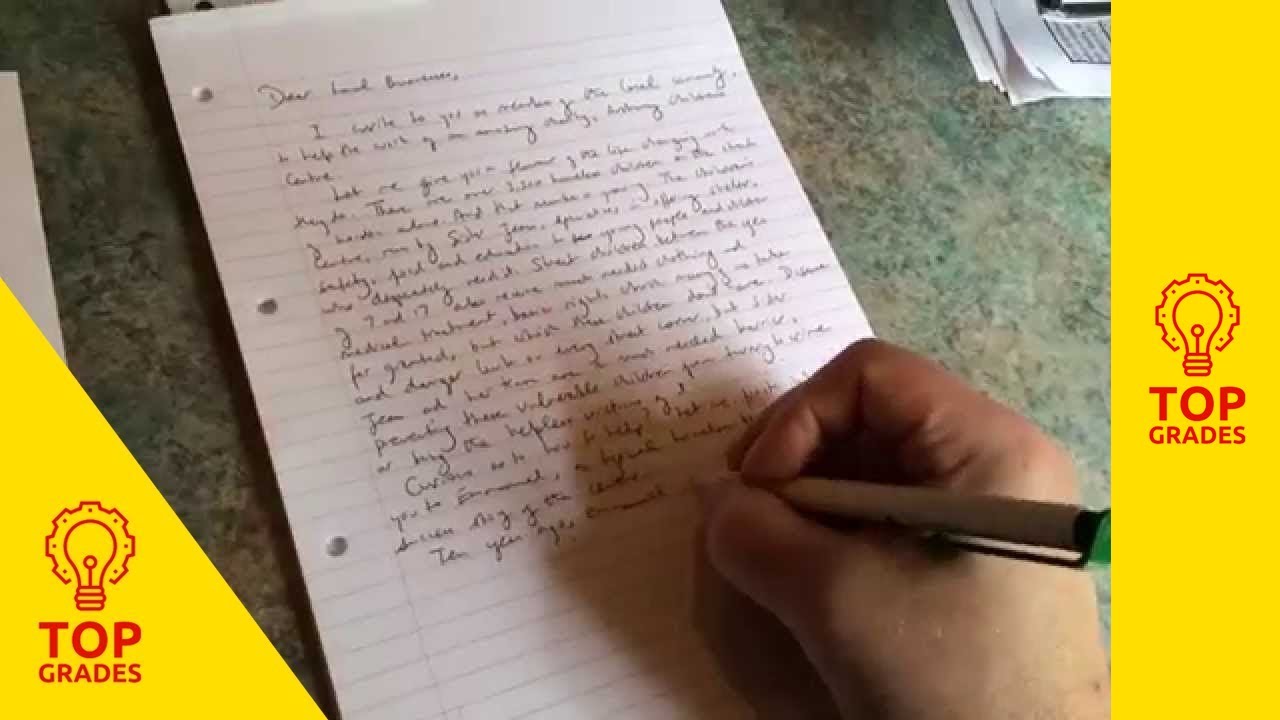 Dear Local Businesses,
I write to you as member of the local community,
to help the work of an amazing charity,
Centre.
Let me give you a flavour of the life changing work
they do. There are over 3,300 homeless children on the streets
alone. And that number is growing. The children's
Centre, run by Sister Jean, specialises in offering shelter,
safety, food and education to young people and children
who desperately need it. Street children between the ages
of 7 and 17 also receive much needed clothing and
medical treatment, basic rights which many of us take
for granted, but which these children don't have. Disease
and danger lurk on every street corner, but Sister
Jean and her team are a much needed barrier,
preventing these vulnerable children from turning to crime
or being the helpless victims of it.
Curious as to how to help? Let me first
you to Emmanuel, a typical
success story of the centre.
Ten years ago, Emmanuel
TOP
GRADES
TOP
GRADES